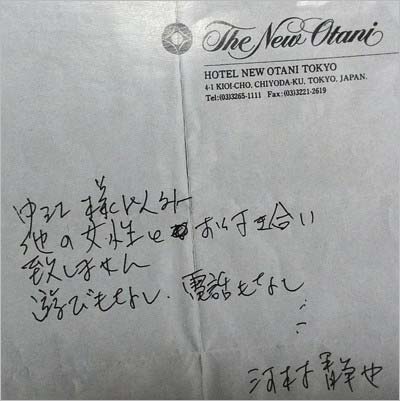 The New Otani
HOTEL NEW OTANI TOKYO
4-1 KIOI-CHO, CHIYODA-KU, TOKYO, JAPAN.
Tel:(03)3265-1111 Fax:(03)3221-2619
様以外
他の女性とお付き合い
致しません
遊びもなし、電話もなし
河村静也